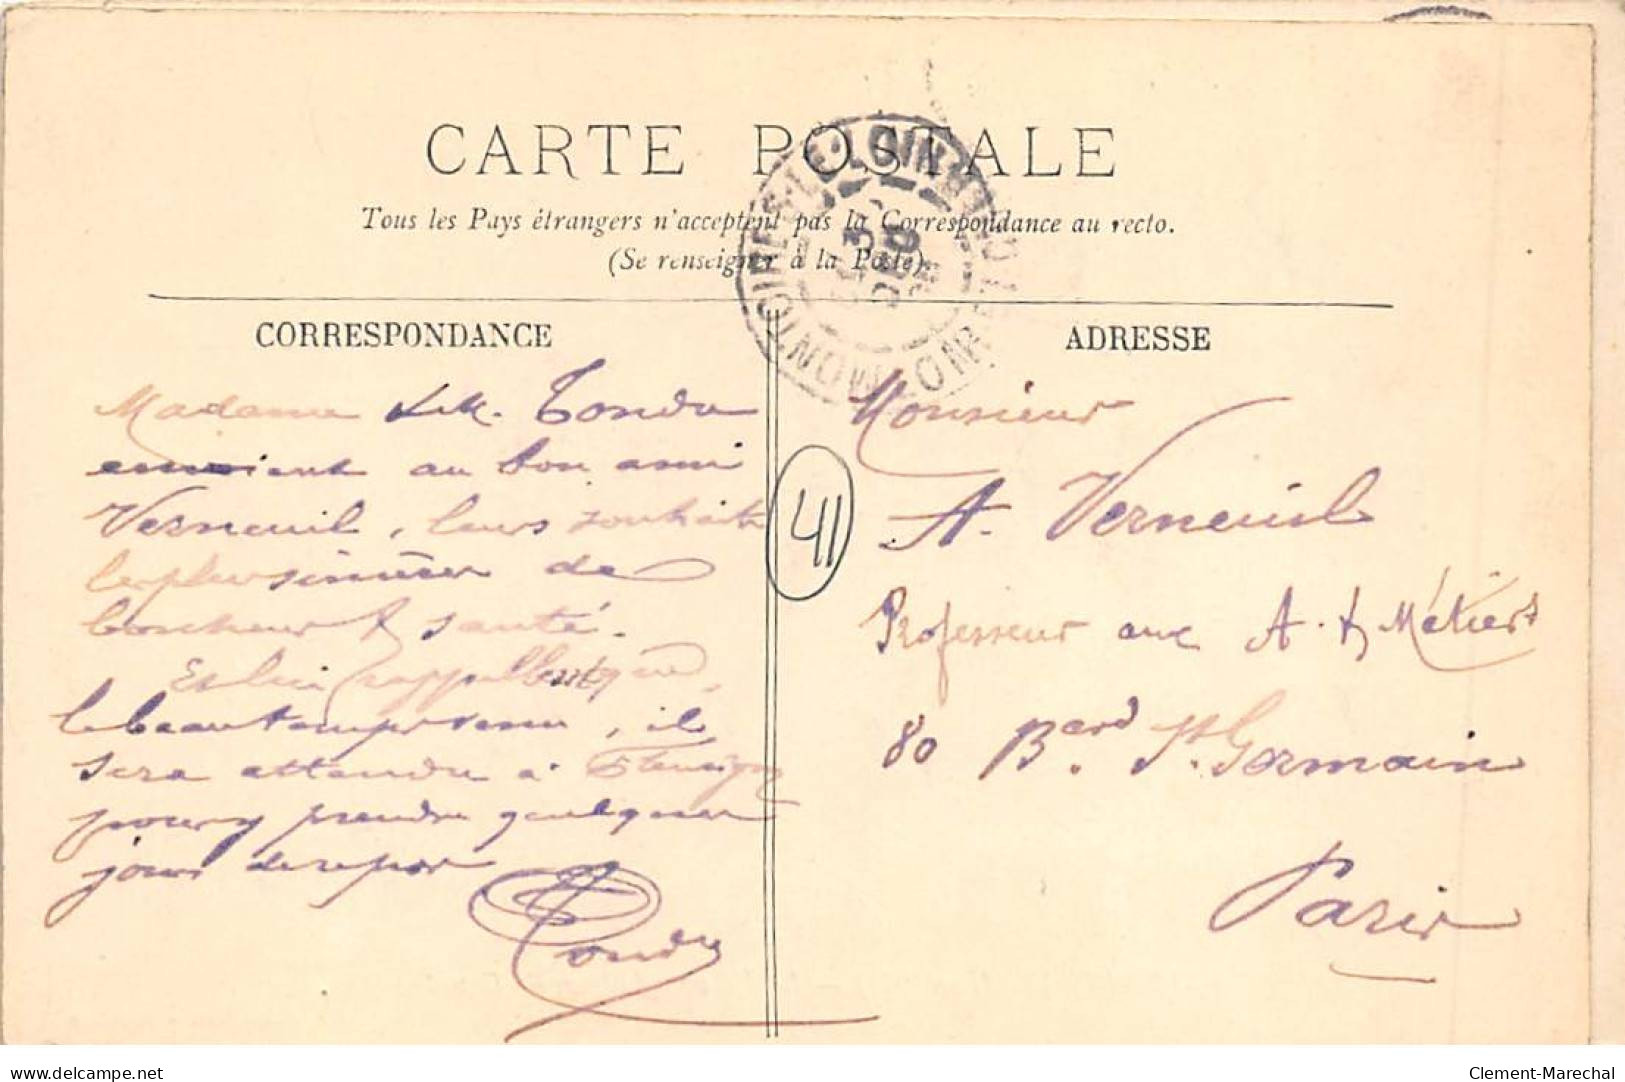 CARTE POSTALE
Tous les Pays étrangers n'acceptent pas la Correspondance au recto.
(Se renseigner à la Poste).
CORRESPONDANCE
Madame & M. Tondu
envoient au bon ami
Verneuil, leurs souhaits
les plus sincères de
bonheur & santé.
Et bien rappellent que
le beau temps venu, il
sera attendu à
pour y prendre quelques
jours de repos
Tondu
41
ADRESSE
Monsieur
A. Verneuil
Professeur aux A. & Métiers
80 Bard St. Germain
Paris
delcampe.net
Clement-Marechal